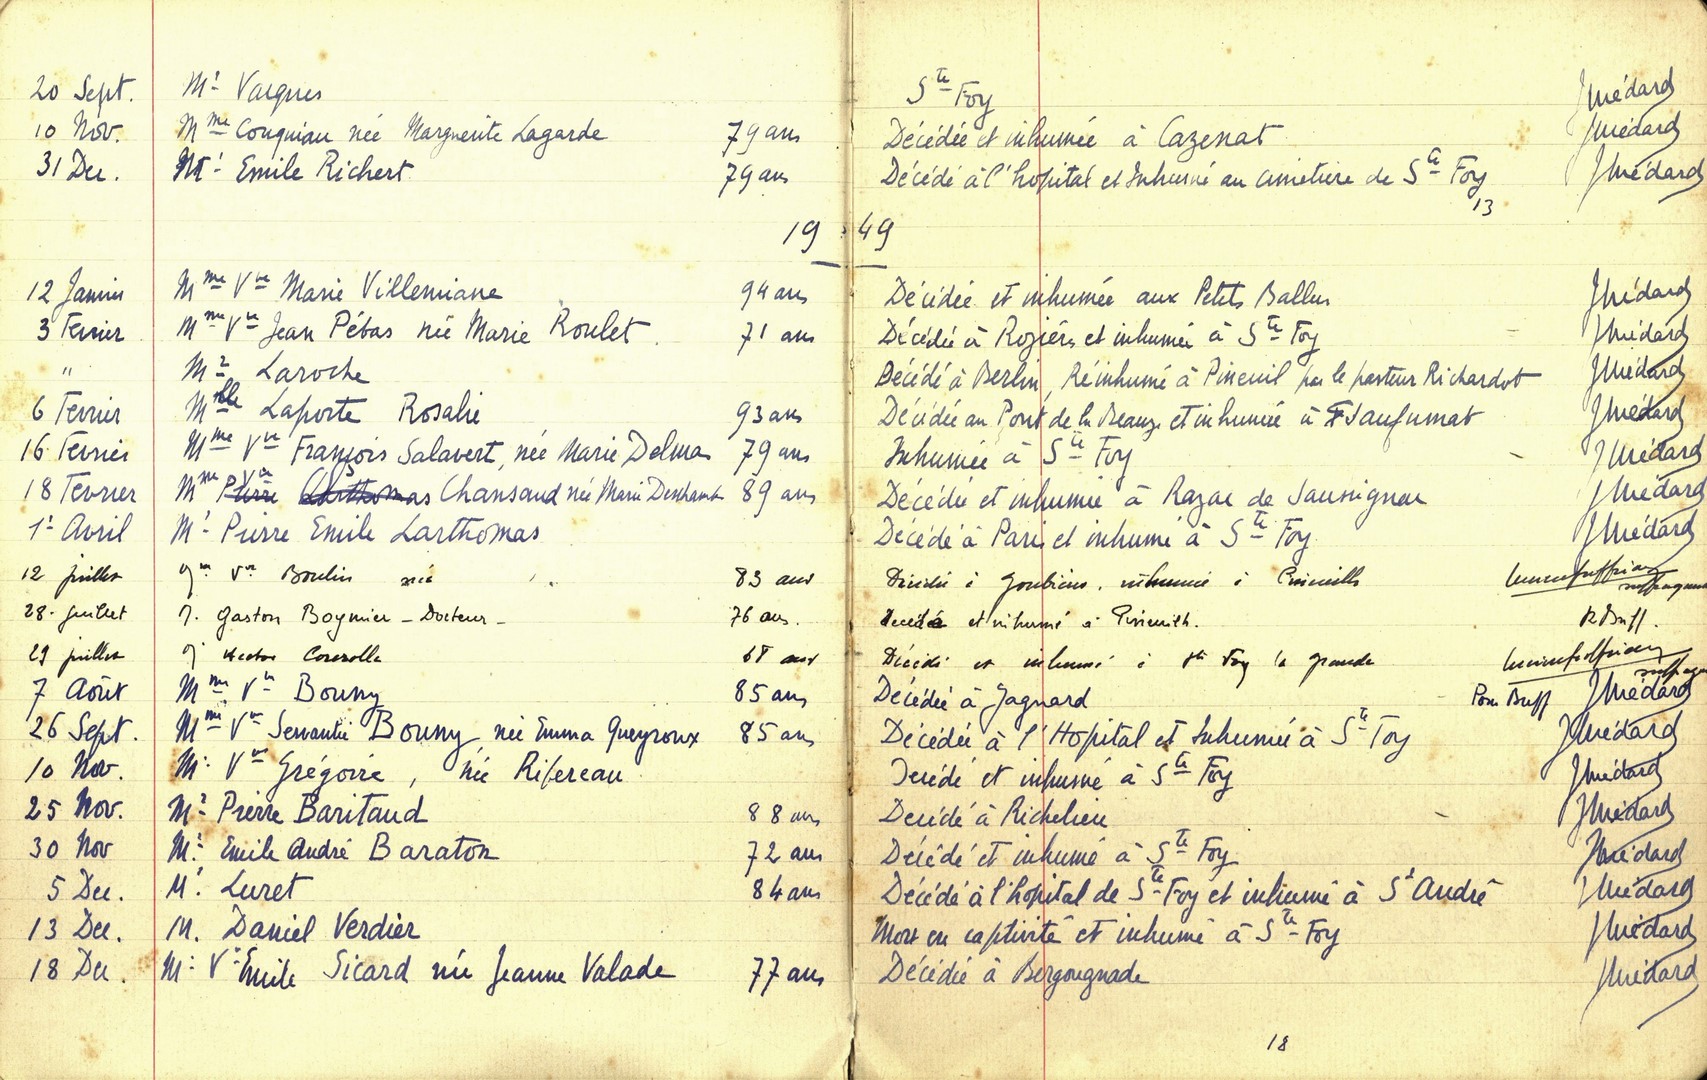 20 Sept. Mr Vargues Ste Foy JMédard
10 Nov. Mme Couquiau née Marguerite Lagarde 79 ans Décédée et inhumée à Cazenat JMédard
31 Dec. Mr Emile Richert 79 ans Décédé à l'hôpital et Inhumé au cimetière de Ste Foy JMédard
13
1949
12 Janvier Mme Vve Marie Villemiane 94 ans Décédée et inhumée aux Petits Ballus JMédard
3 Fevrier Mme Vve Jean Pébas née Marie Roulet 71 ans Décédée à Rozièrs et inhumée à Ste Foy JMédard
" Mr Laroche Décédé à Berlin, Réinhumé à Pineuil par le pasteur Richardot JMédard
6 Fevrier Mlle Laporte Rosalie 93 ans Décédée au Pont de la Beauze et inhumée à Jaufumat JMédard
16 Fevrier Mme Vve François Salavert, née Marie Delmas 79 ans Inhumée à Ste Foy JMédard
18 Fevrier Mme Vve Chansaud née Marie Deschamts 89 ans Décédée et inhumée à Razac de Saussignac JMédard
1r Avril Mr Pierre Emile Larthomas Décédé à Paris et inhumé à Ste Foy JMédard
12 juillet Vve Boulin née 83 ans Décédée à inhumée à
28 juillet Gaston Boymier - Docteur - 76 ans. Decédé et inhumé à Pineuilh. R Buff.
29 juillet Hector 68 ans Décédé et inhumé à Ste Foy la grande
7 Août Mme Vve Bouny 85 ans Décédée à Jagnard Pour Buff JMédard
26 Sept. Mme Vve Servantie Bouny née Emma Queyroux 85 ans Décédée à l'Hopital et Inhumée à Ste Foy JMédard
10 Nov. M. Vve Grégoire, née Rifereau Décédé et inhumé à Ste Foy JMédard
25 Nov. Mr Pierre Baritaud 88 ans Decédé à Richelieu JMédard
30 Nov Mr Emile André Baraton 72 ans Décédé et inhumé à Ste Foy JMédard
5 Dec. Mr Luret 84 ans Décédé à l'hôpital de Ste Foy et inhumé à St André JMédard
13 Dec. M. Daniel Verdier Mort en captivité et inhumé à Ste Foy JMédard
18 Dec M. Ve Emile Sicard née Jeanne Valade 77 ans Décédée à Bergougnade JMédard
18